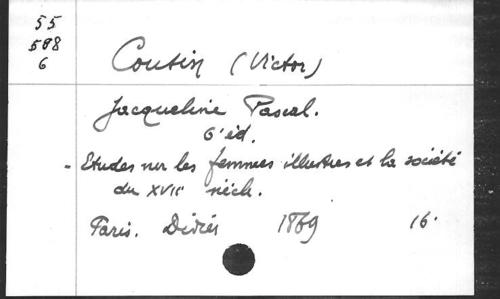 55
598
6
Cousin (Victor)
Jacqueline Pascal.
6' éd.
- Etudes sur les femmes illustres et la société
du XVIIe siècle.
Paris. Didier 1869 16.